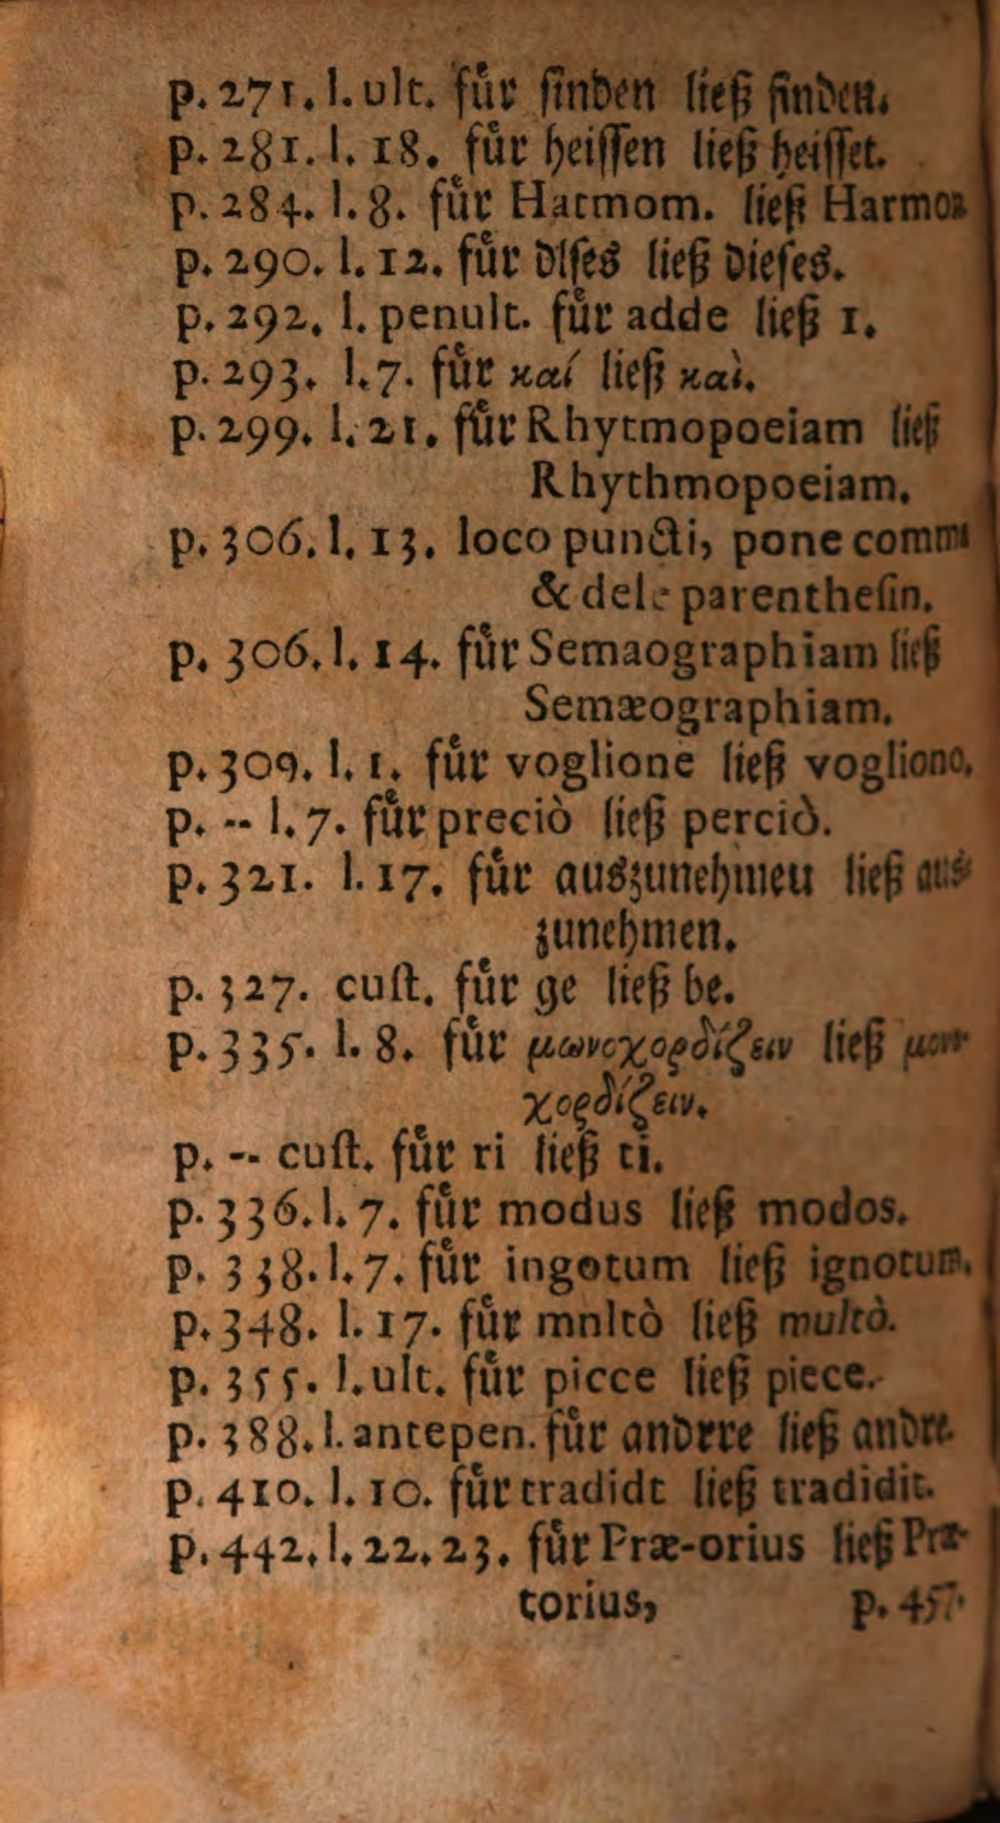 p. 271. l. ult. fůr ſinden ließ finden.
p. 281. l. 18. fůr heiſſen ließ heiſſet.
p. 284. l. 8. fůr Hatmom. ließ Harmon
p. 290. l. 12. fůr diſes ließ dieſes.
p. 292. l. penult. fůr adde ließ 1.
p. 293. l. 7. fůr καί ließ καὶ.
p. 299. l. 21. fůr Rhytmopoeiam ließ
Rhythmopoeiam.
p. 306. l. 13. loco puncti, pone comma
& dele parentheſin.
p. 306. l. 14. fůr Semaographiam ließ
Semæographiam.
p. 309. l. 1. fůr voglione ließ vogliono.
p. -- l. 7. fůr preciò ließ perciò.
p. 321. l. 17. fůr auszunehmeu ließ aus-
zunehmen.
p. 327. cuſt. fůr ge ließ be.
p. 335. l. 8. fůr μωνοχορδίζειν ließ μονο-
χορδίζειν.
p. -- cuſt. fůr ri ließ ti.
p. 336. l. 7. fůr modus ließ modos.
p. 338. l. 7. fůr ingotum ließ ignotum.
p. 348. l. 17. fůr mnltò ließ multò.
p. 355. l. ult. fůr picce ließ piece.
p. 388. l. antepen. fůr andrre ließ andre.
p. 410. l. 10. fůr tradidt ließ tradidit.
p. 442. l. 22. 23. fůr Præ-orius ließ Præ-
torius, p. 457.